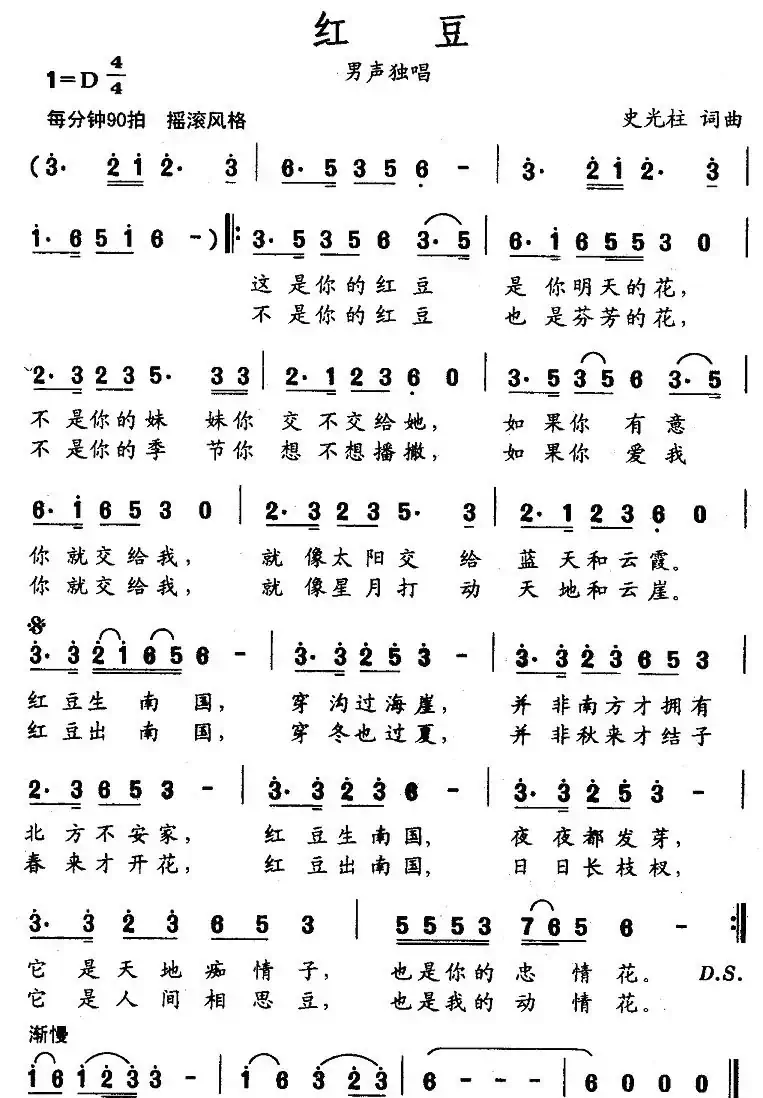 红 豆
男声独唱
1=D 4/4
每分钟90拍 摇滚风格
史光柱 词曲
(3· 2 1 2· 3 | 6· 5 3 5 6 - | 3· 2 1 2· 3 |
1· 6 5 1 6 -) |: 3· 5 3 5 6 3· 5 | 6· 1 6 5 5 3 0 |
这 是你的红 豆 是 你明天的花,
不 是你的红 豆 也 是芬芳的花,
2· 3 2 3 5· 3 3 | 2· 1 2 3 6 0 | 3· 5 3 5 6 3· 5 |
不 是你的妹 妹你 交 不交给她, 如 果你 有 意
不 是你的季 节你 想 不想播撒, 如 果你 爱 我
6· 1 6 5 3 0 | 2· 3 2 3 5· 3 | 2· 1 2 3 6 0 |
你 就交给我, 就 像太阳交 给 蓝 天和云霞。
你 就交给我, 就 像星月打 动 天 地和云崖。
3· 3 2 1 6 5 6 - | 3· 3 2 5 3 - | 3· 3 2 3 6 5 3 |
红 豆生 南 国, 穿 沟过海崖, 并 非南方才拥有
红 豆出 南 国, 穿 冬也过夏, 并 非秋来才结子
2· 3 6 5 3 - | 3· 3 2 3 6 - | 3· 3 2 5 3 - |
北 方不安家, 红 豆生南国, 夜 夜都发芽,
春 来才开花, 红 豆出南国, 日 日长枝杈,
3· 3 2 3 6 5 3 | 5 5 5 3 7 6 5 6 - :|
它 是天地痴情子, 也是你的忠 情花。 D.S.
它 是人间相思豆, 也是我的动 情花。
渐慢
1 6 1 2 3 3 - | 1 6 3 2 3 | 6 - - - | 6 0 0 0 ||